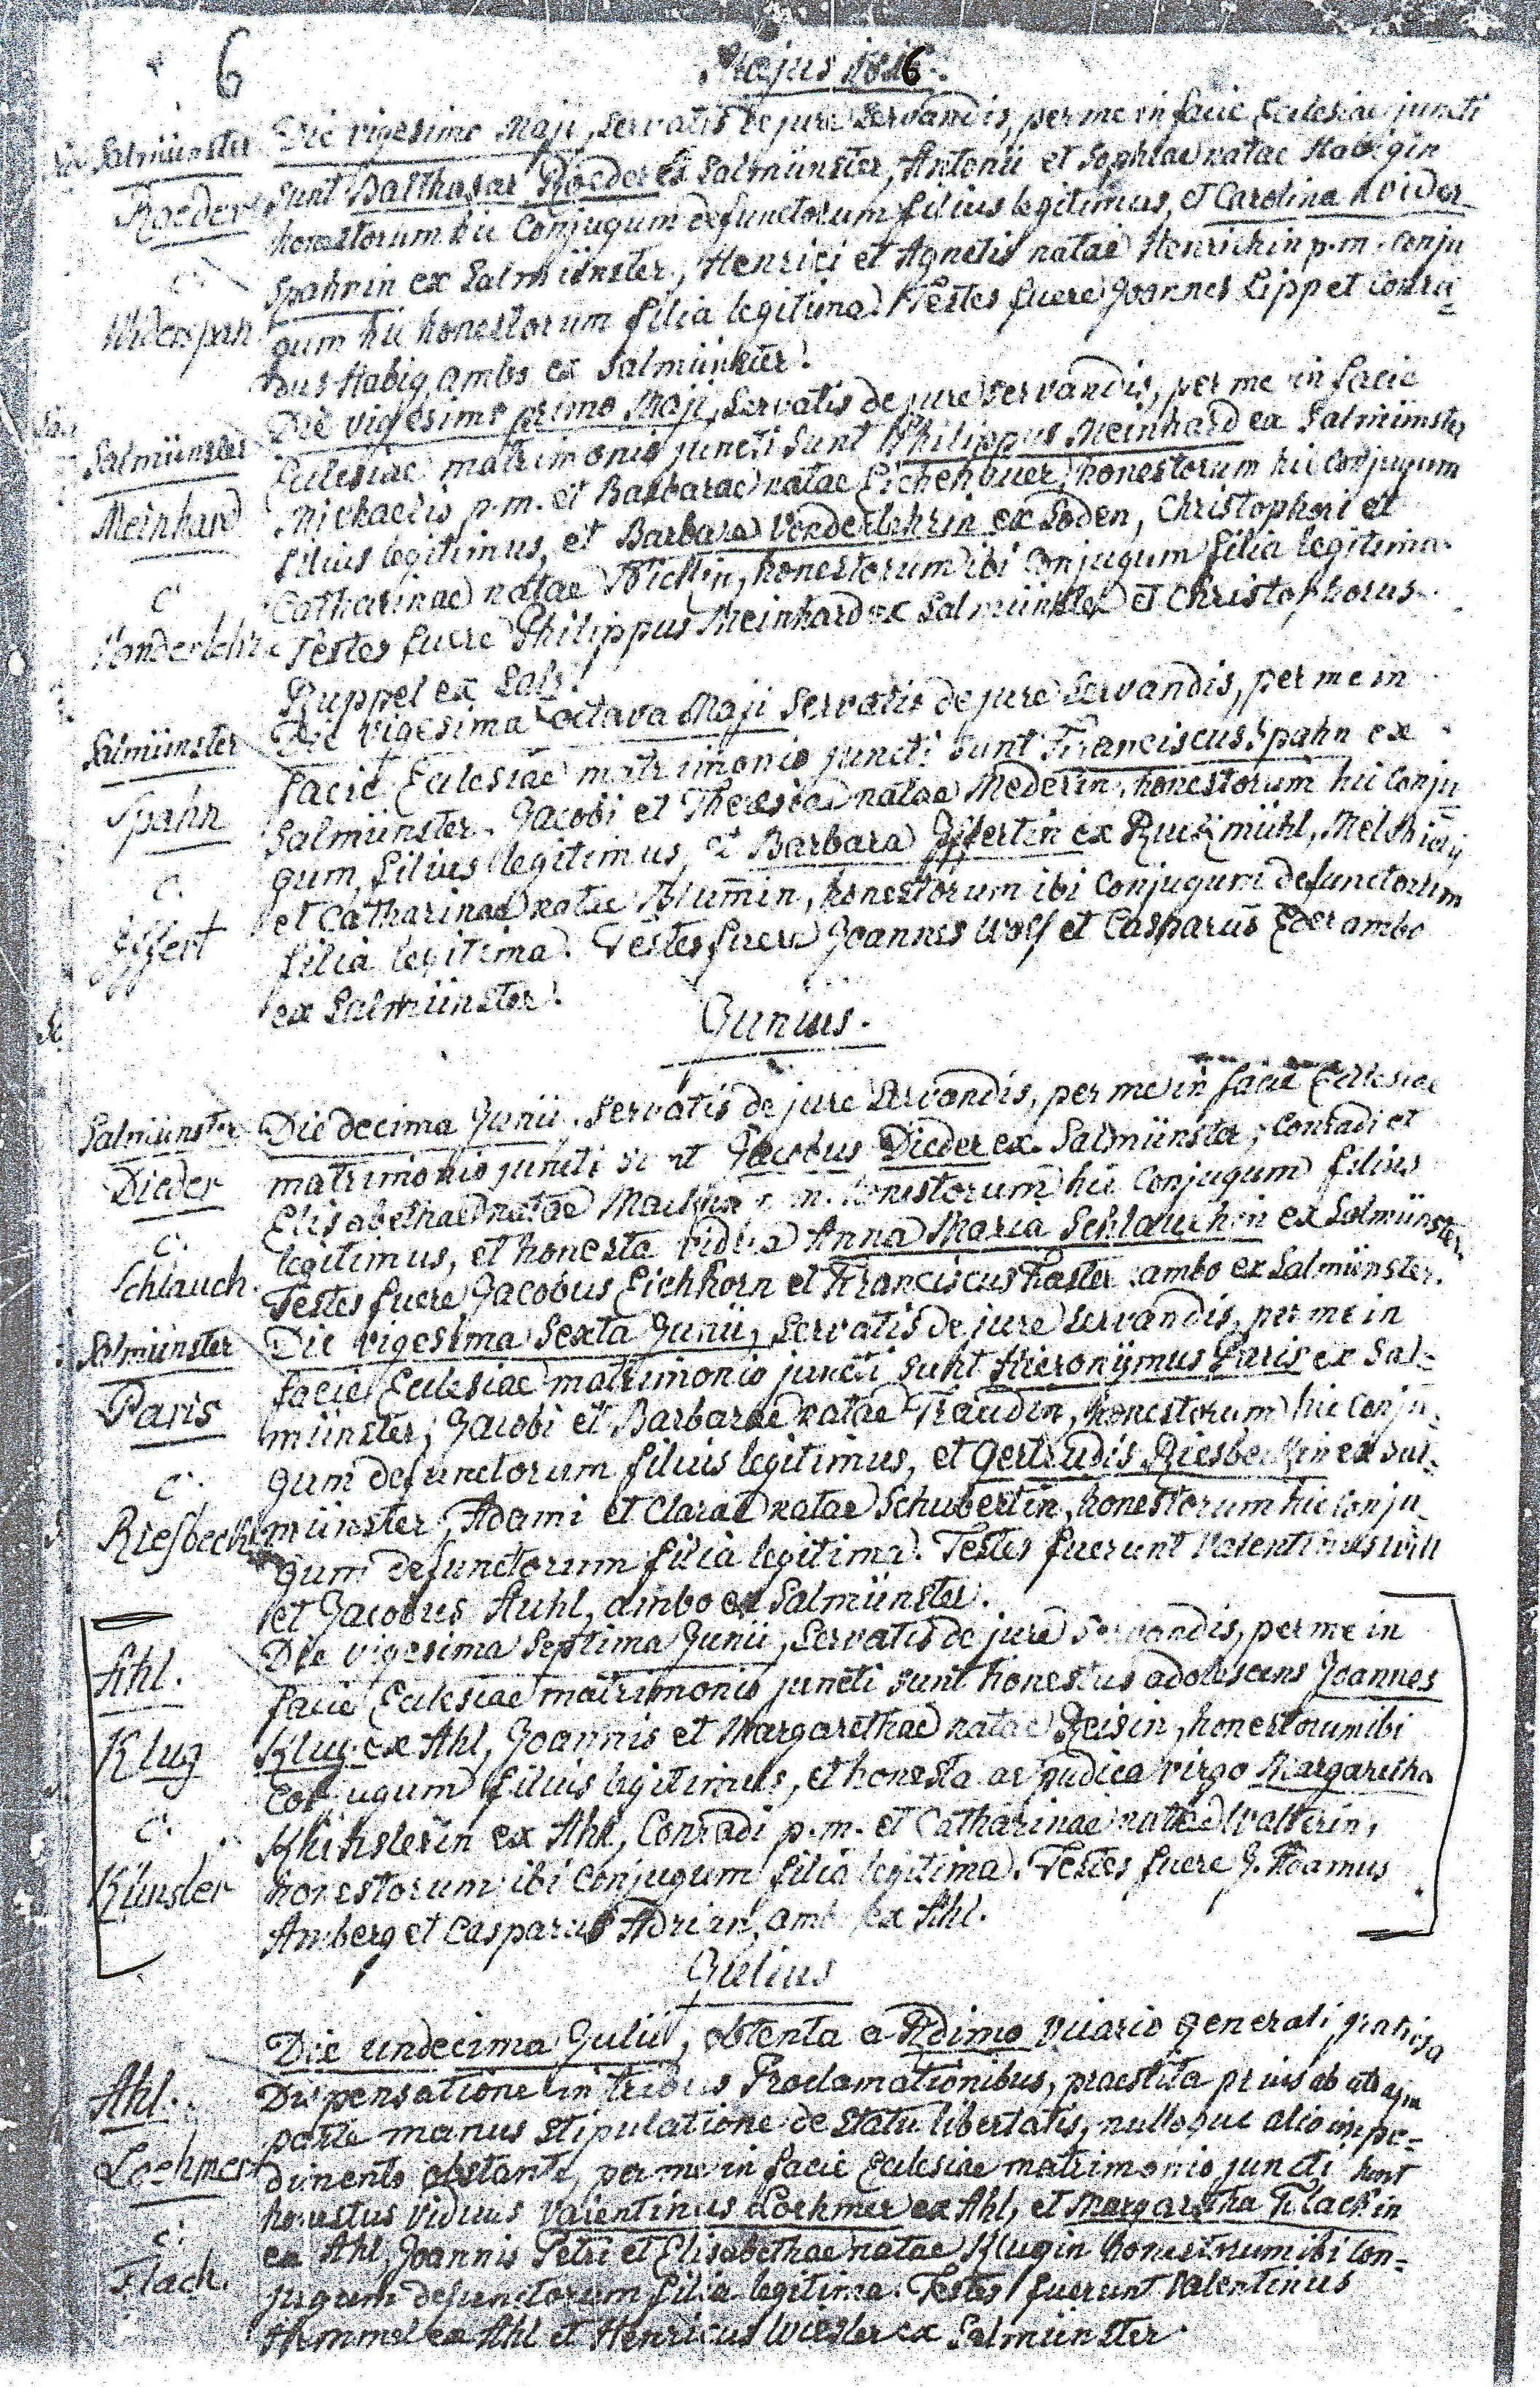 6
Majus 1816.
Salmünster
Die vigesima Maji, Servatis de jure Servandis, per me in facie Ecclesiae juncti
Roeder
sunt Balthasar Roeder ex Salmünster, Antonii et Sophiae natae Habigin
honestorum hic Conjugum defunctorum filius legitimus, et Carolina Wider-
C.
spahnin ex Salmünster, Henrici et Agnetis natae Henrichin p.m. Conju
Widerspan
gum hic honestorum filia legitima. Testes fuere Joannes Lipp et Conra=
dus Habig, ambo ex Salmünster.
Salmünster
Die vigesima prima Maji, Servatis de jure Servandis, per me in facie
Ecclesiae matrimonio juncti sunt Philippus Meinhard ex Salmünster
Meinhard
Michaelis p.m. et Barbarae natae Eichenauer, honestorum hic Conjugum
filius legitimus, et Barbara Vonderlehrin ex Soden, Christophori et
C.
Catharinae natae, honestorum ibi Conjugum filia legitima.
Vonderlehr
Testes fuere Philippus Meinhard ex Salmünster et Christophorus
Ruppel ex Salz.
Salmünster
Die vigesima octava Maji Servatis de jure Servandis, per me in
facie Ecclesiae matrimonio juncti sunt Franciscus Spahn ex
Spahn
Salmünster, Jacobi et Theresiae natae Mederin, honestorum hic Conju
C.
gum, filius legitimus, et Barbara Iffertin ex Ruckmühl, Melchioris
et Catharinae natae Blumin, honestorum ibi Conjugum defunctorum
Iffert
filia legitima. Testes fuere Joannes Wolf et Casparus Eder ambo
ex Salmünster.
Junius.
Salmünster
Die decima Junii, Servatis de jure Servandis, per me in facie Ecclesiae
Dieder
matrimonio juncti sunt Jacobus Dieder ex Salmünster, Conradi et
Elisabethae natae p.m. honestorum hic Conjugum filius
C.
legitimus, et honesta vidua Anna Maria Schlauchin ex Salmünster.
Schlauch.
Testes fuere Jacobus Eichhorn et Franciscus Faster ambo ex Salmünster.
Salmünster
Die vigesima Sexta Junii, Servatis de jure Servandis, per me in
facie Ecclesiae matrimonio juncti sunt Hieronymus Paris ex Sal=
Paris
münster, Jacobi et Barbarae natae Traudin, honestorum hic Conju=
C.
gum defunctorum filius legitimus, et Gertrudis Riesbeckin ex Sal=
Riesbeck
münster, Adami et Clarae natae Schubertin, honestorum hic Conju=
gum defunctorum filia legitima. Testes fuerunt Valentinus Will
et Jacobus Auhl, ambo ex Salmünster.
Ahl.
Die vigesima Septima Junii, Servatis de jure Servandis, per me in
facie Ecclesiae matrimonio juncti sunt honestus adolescens Joannes
Klug
Klug ex Ahl, Joannis et Margarethae natae Reisin, honestorum ibi
Conjugum filius legitimus, et honesta ac pudica virgo Margaretha
C.
Künslerin ex Ahl, Conradi p.m. et Catharinae natae Walterin,
Künsler
honestorum ibi Conjugum filia legitima. Testes fuere J. Adamus
Amberg et Casparus Adrian, ambo ex Ahl.
Julius
Die undecima Julii, obtenta a Rdimo Vicario generali gratiosa
Ahl.
Dispensatione in tribus Proclamationibus, praestita prius ab utraque
parte manus stipulatione de statu libertatis, nulloque alio impe=
Lochmer
dimento obstante, per me in facie Ecclesiae matrimonio juncti sunt
honestus viduus Valentinus Lochmer ex Ahl, et Margaretha Flachin
C.
ex Ahl, Joannis Petri et Elisabethae natae Klugin honestorum ibi Con=
Flach.
jugum defunctorum filia legitima. Testes fuerunt Valentinus
Himmel ex Ahl et Henricus Wiesler ex Salmünster.